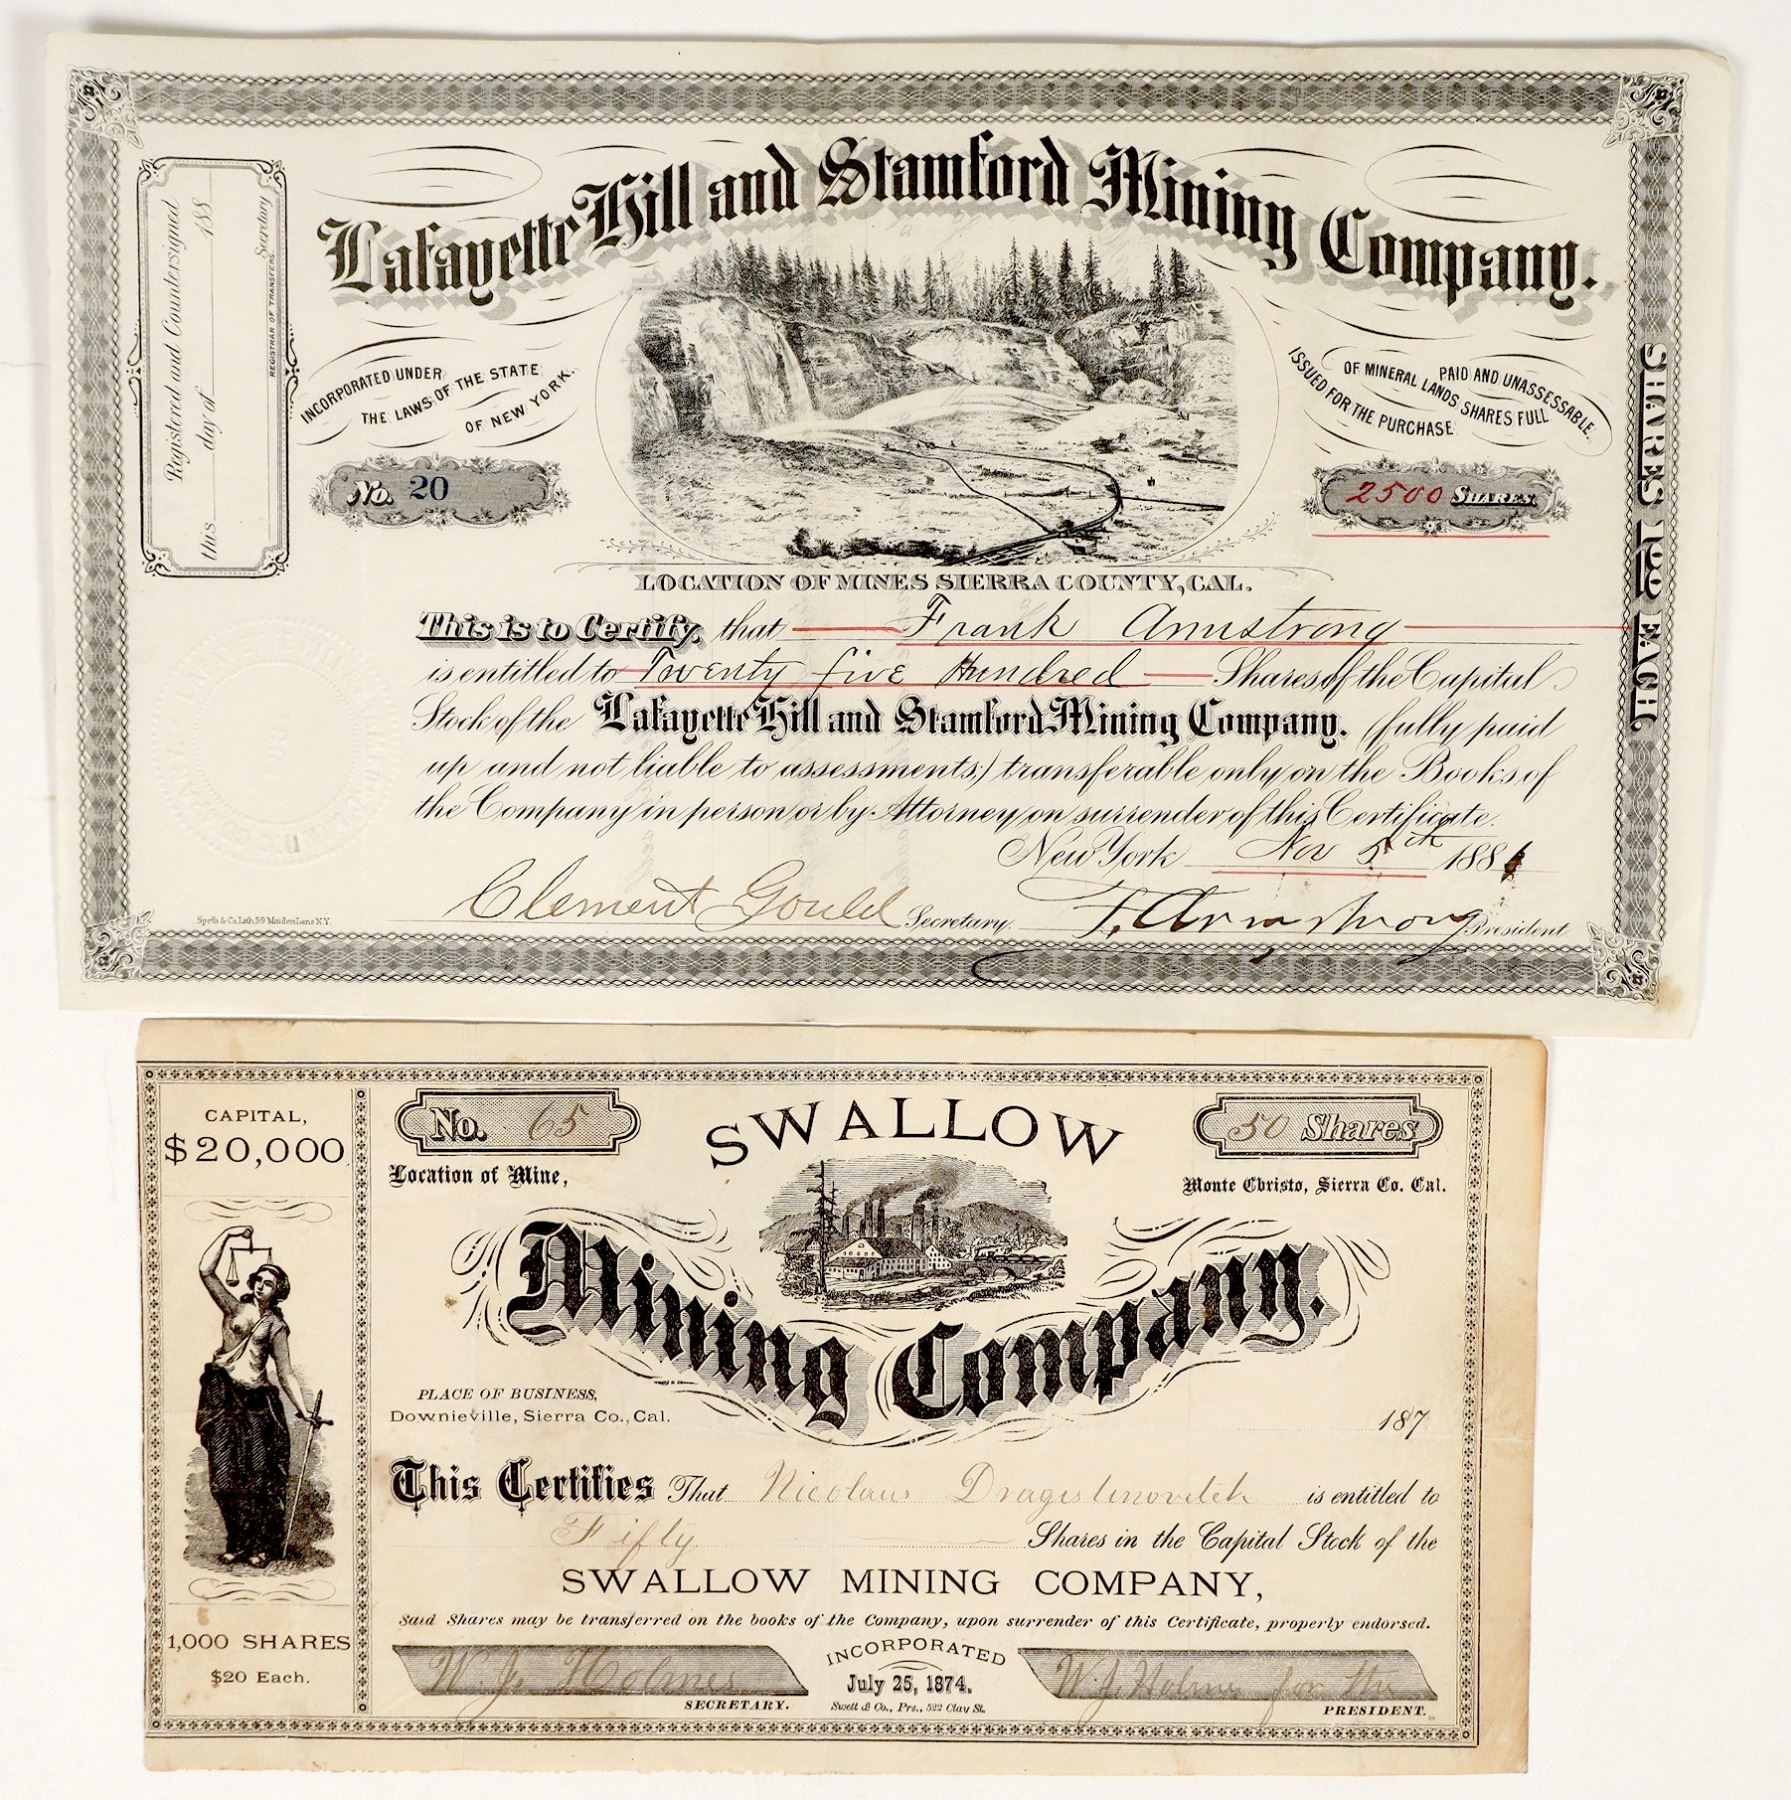 Lafayette Hill and Stamford Mining Company.
Registered and Countersigned
this day of 188
Secretary
REGISTRAR OF TRANSFERS.
INCORPORATED UNDER
THE LAWS OF THE STATE
OF NEW YORK.
ISSUED FOR THE PURCHASE
OF MINERAL LANDS SHARES FULL
PAID AND UNASSESSABLE.
No. 20
2500 SHARES
SHARES $1.00 EACH.
LOCATION OF MINES SIERRA COUNTY, CAL.
This is to Certify, that Frank Armstrong
is entitled to Twenty five Hundred Shares of the Capital
Stock of the Lafayette Hill and Stamford Mining Company. (fully paid
up and not liable to assessments;) transferable only on the Books of
the Company in person or by Attorney on surrender of this Certificate.
New York Nov 5th 1881
Clement Gould Secretary. F. Armstrong President
Speth & Co. Lith. 59 Maiden Lane N.Y.
CAPITAL,
$20,000
1,000 SHARES
$20 Each.
No. 65
SWALLOW
50 Shares
Location of Mine,
Monte Christo, Sierra Co. Cal.
Mining Company.
PLACE OF BUSINESS,
Downieville, Sierra Co., Cal.
187
This Certifies That Nicolaus Dragistinovitch is entitled to
Fifty Shares in the Capital Stock of the
SWALLOW MINING COMPANY,
Said Shares may be transferred on the books of the Company, upon surrender of this Certificate, properly endorsed.
W. J. Holmes
SECRETARY.
INCORPORATED
July 25, 1874.
Swett & Co., Prs., 522 Clay St.
W. J. Holmes for the
PRESIDENT.